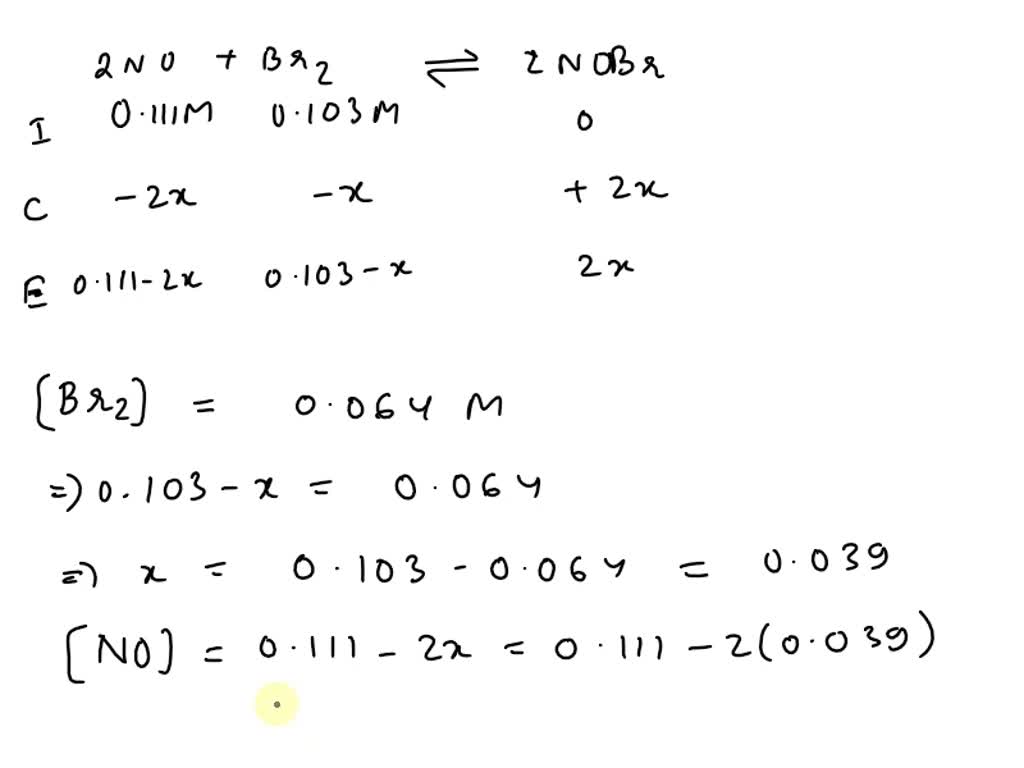 2NO + Br₂ ⇌ 2NOBr
I 0.111M 0.103M 0
C -2x -x + 2x
E 0.111-2x 0.103-x 2x
[Br₂] = 0.064 M
=) 0.103 - x = 0.064
=) x = 0.103 - 0.064 = 0.039
[NO] = 0.111 - 2x = 0.111 - 2(0.039)